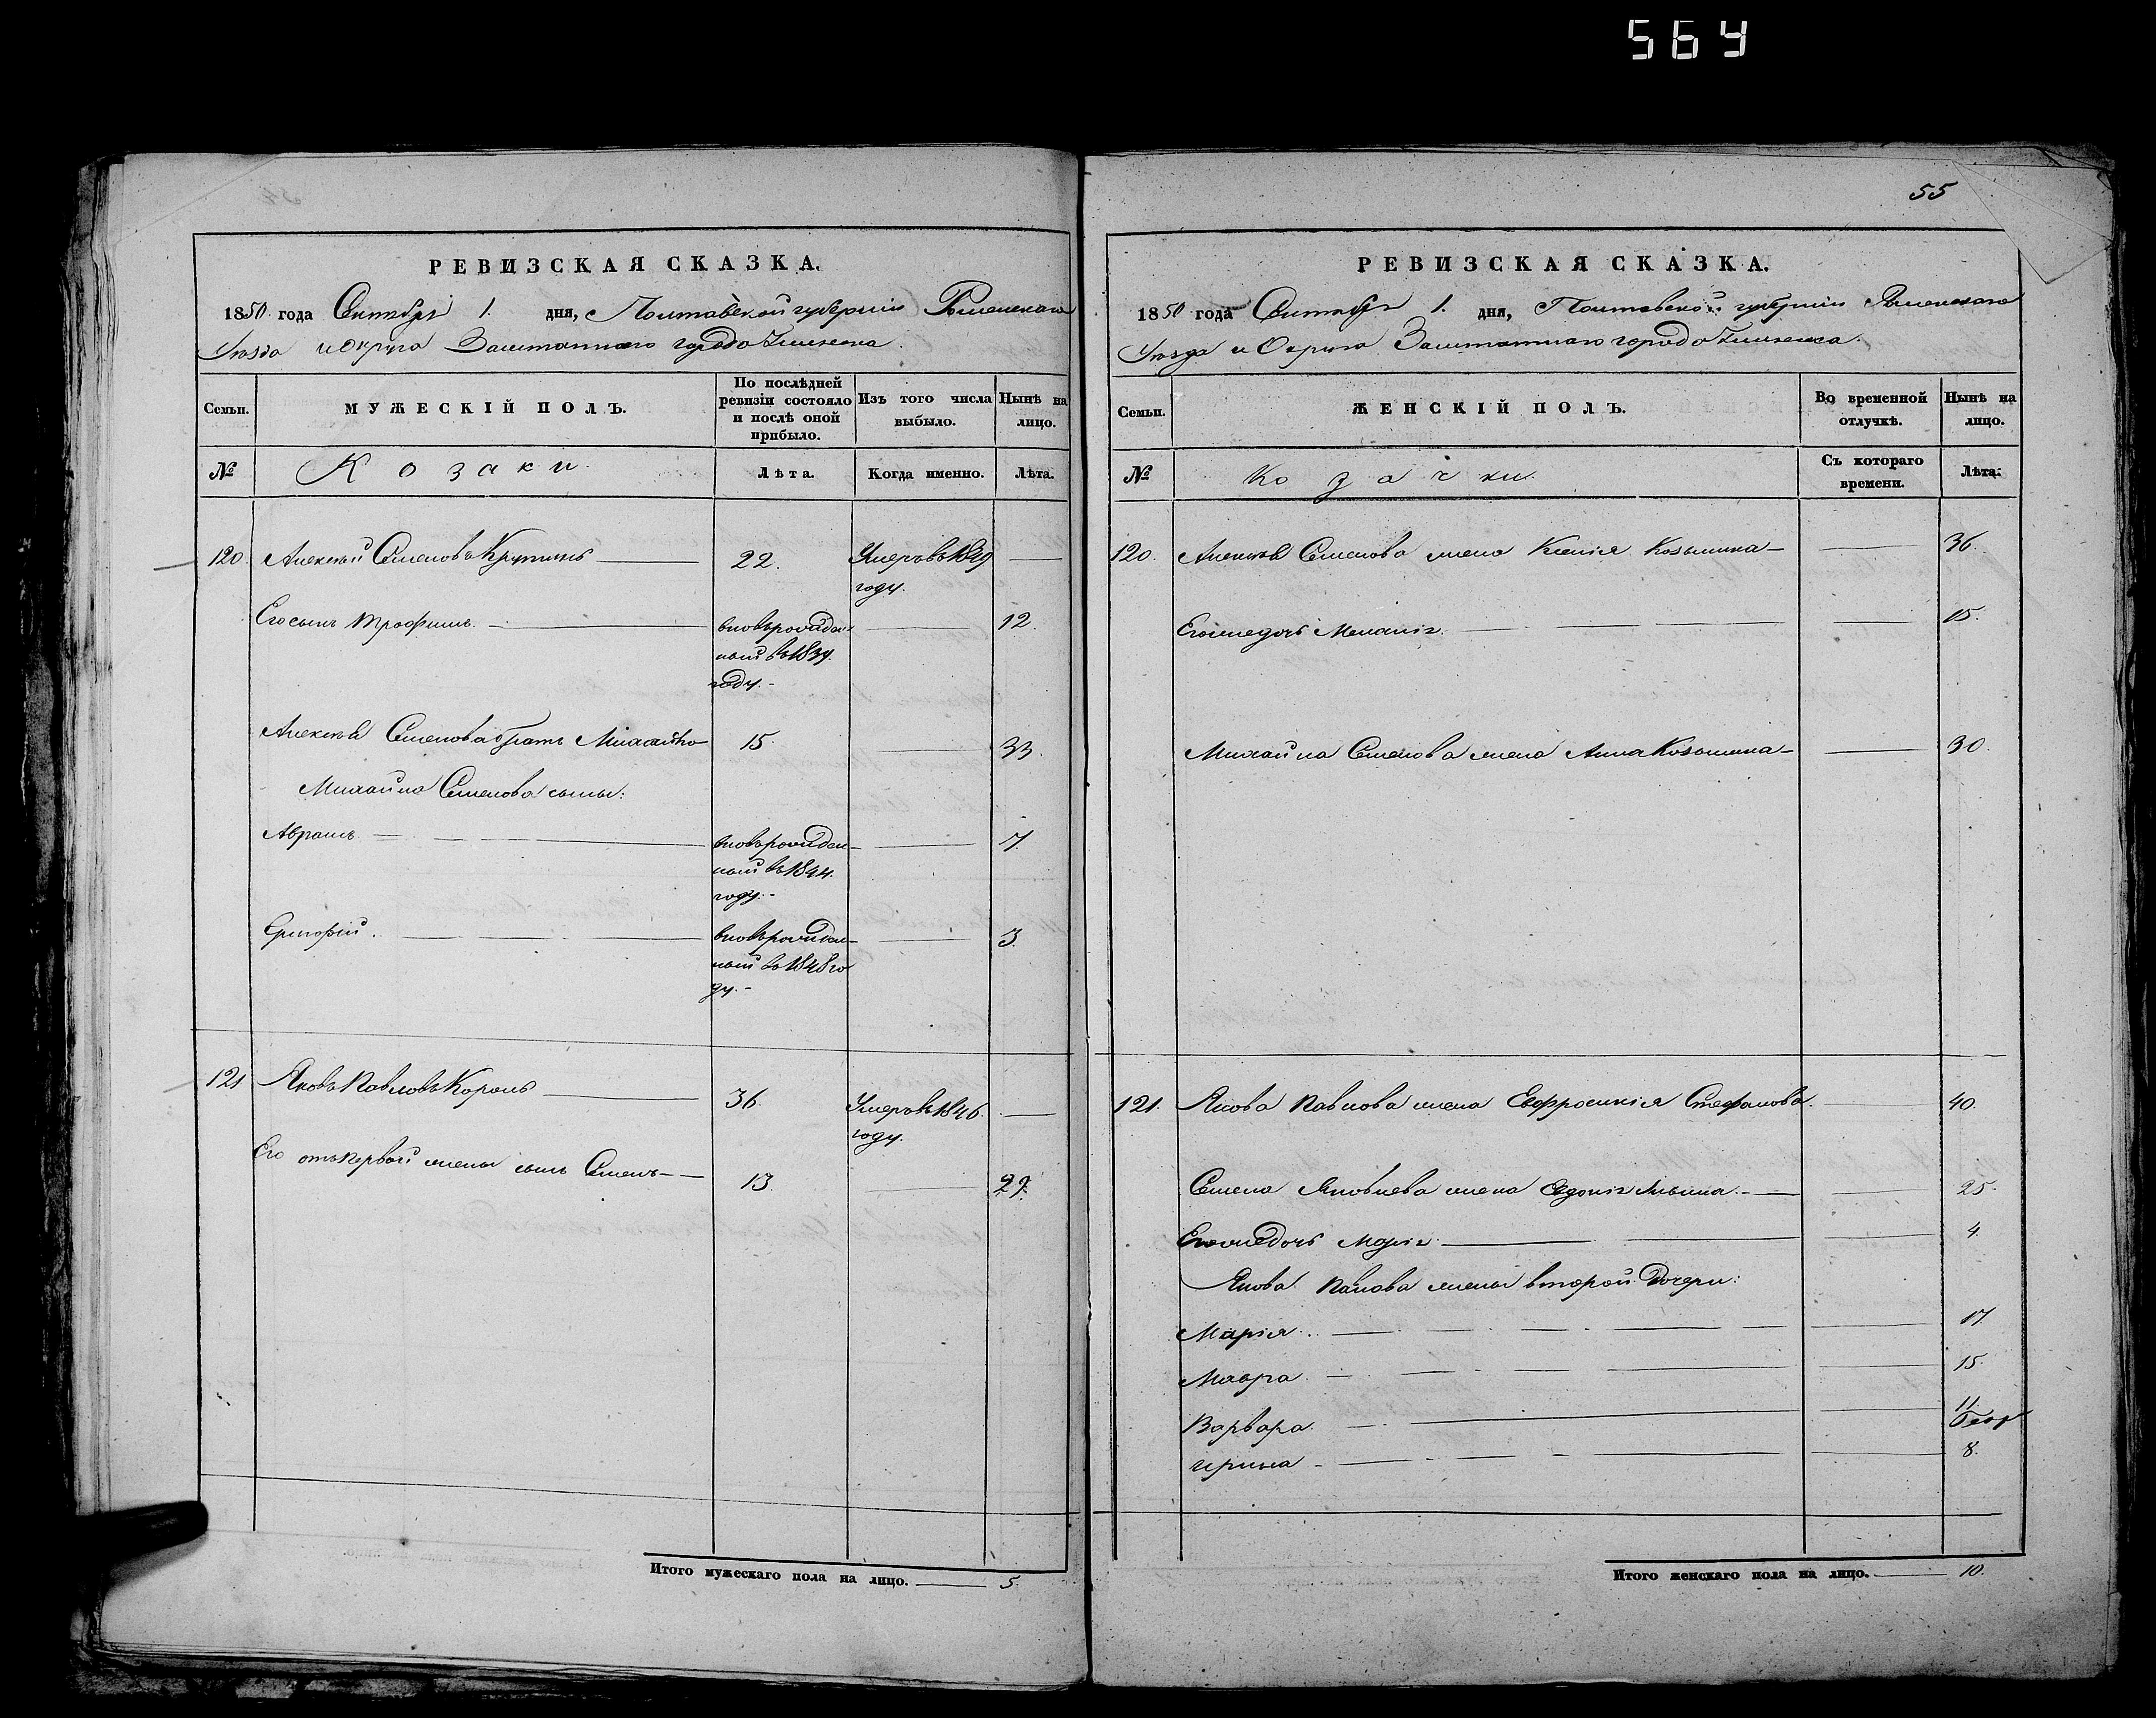 564
РЕВИЗСКАЯ СКАЗКА.
1850 года Октября 1. дня, Полтавской губернии Роменскаго
Уезда и округа Заштатнаго города Глинска.
Семьи.
МУЖЕСКІЙ ПОЛЪ.
По послѣдней ревизіи состояло и послѣ оной прибыло.
Изъ того числа выбыло.
Нынѣ на лицо.
№
Козаки.
Лѣта.
Когда именно.
Лѣта.
120 Алексѣй Семеновъ 22. Умеръ въ 1849
году.
Его сынъ Трофимъ. вновьрожден- 12.
ный въ 1839.
году.
Алексѣя Семенова братъ Михайло 15. 33.
Михайла Семенова сыны:
Абрамъ вновьрожден- 7
ный въ 1844.
году.
Григорій. вновьрожден- 3.
ный въ 1848 го
ду.
121 Яковъ Павловъ Король 36. Умеръ въ 1846.
году.
Его отъ первой жены сынъ Семенъ 13. 29.
Итого мужескаго пола на лицо. 5.
55
РЕВИЗСКАЯ СКАЗКА.
1850 года Октября 1. дня, Полтавской губерніи Роменскаго
Уезда и Округа Заштатнаго города Глинска.
Семьи.
ЖЕНСКІЙ ПОЛЪ.
Во временной отлучкѣ.
Нынѣ на лицо.
№
Козачки.
Съ котораго времени.
Лѣта.
120. Алексѣя Семенова жена Ксенія Козьмина 36.
Его же дочь Меланія. 15.
Михайла Семенова жена Анна Козьмина 30.
121. Якова Павлова жена Евфросинія Стефанова. 40.
Семена Яковлева жена Ильина. 25.
Его же дочь Марія 4.
Якова Павлова жены второй дочери:
Марія. 17
Мавра. 15.
Варвара. 11.
Ирина 8.
Итого женскаго пола на лицо. 10.